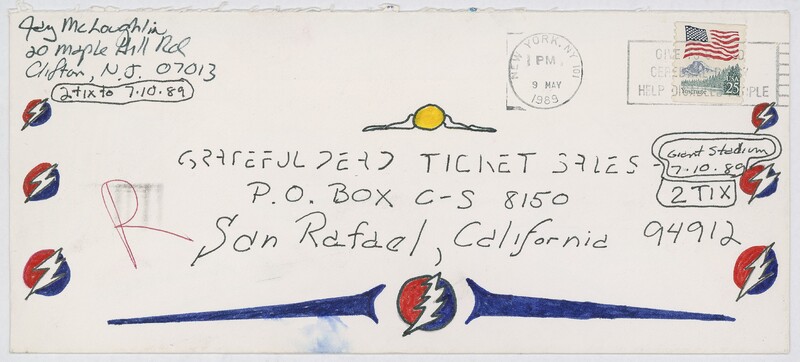 Jay McLoughlin
20 Maple Hill Rd
Clifton, N.J. 07013
2 tix to 7.10.89
NEW YORK, NY 101
1 PM
9 MAY
1989
GIVE
HELP
PLE
USA
25
GRATEFUL DEAD TICKET SALES
Giant Stadium
7.10.89
2 TIX
P.O. BOX C-S 8150
San Rafael, California 94912
R